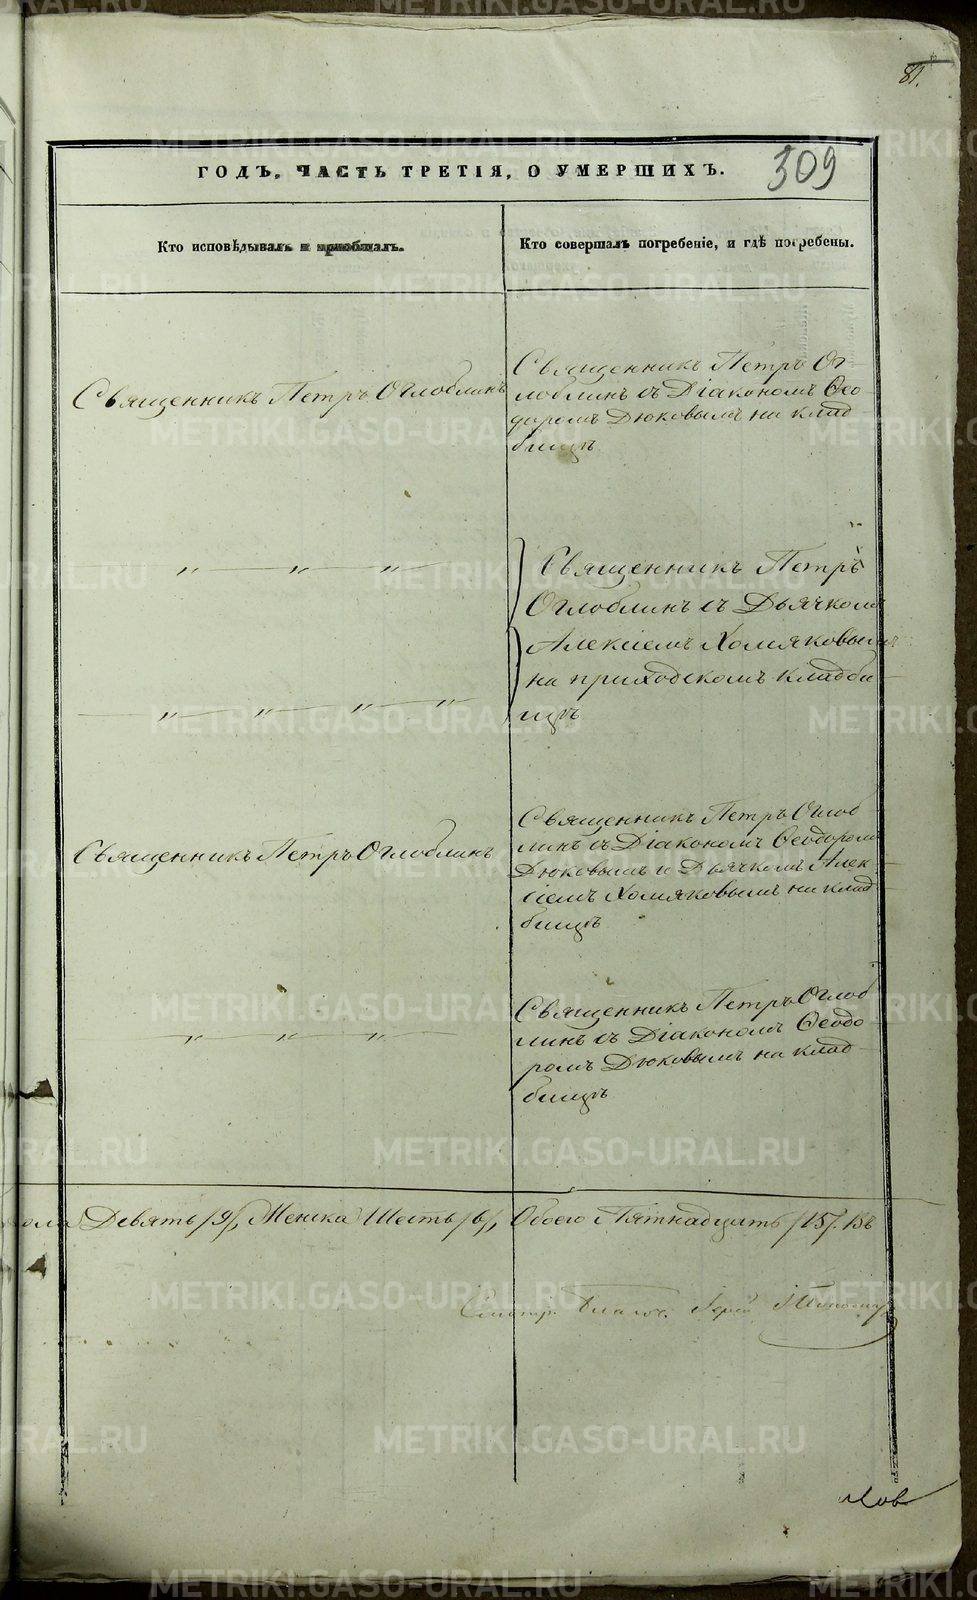 81.
ГОДЪ, ЧАСТЬ ТРЕТІЯ, О УМЕРШИХЪ.
309
Кто исповѣдывалъ и пріобщалъ.
Кто совершалъ погребеніе, и гдѣ погребены.
Священникъ Петръ Оглоблинъ
Священникъ Петръ Ог-
лоблинъ съ Діакономъ Ѳео
доромъ Дюковымъ на клад
бищѣ
〃 〃 〃
Священникъ Петръ
Оглоблинъ съ Дьячкомъ
Алексіемъ Хомяковымъ
на приходскомъ кладби-
щѣ
〃 〃 〃 〃
Священникъ Петръ Оглоблинъ
Священникъ Петръ Оглоб-
линъ съ Діакономъ Ѳеодоромъ
Дюковымъ и Дьячкомъ Алек-
сіемъ Хомяковымъ на клад
бищѣ
〃 〃 〃
Священникъ Петръ Оглоб
линъ съ Діакономъ Ѳеодо-
ромъ Дюковымъ на клад-
бищѣ
пола Девять /9/, Женска Шесть /6/, Обоего Пятнадцать /15/. Въ
METRIKI.GASO-URAL.RU